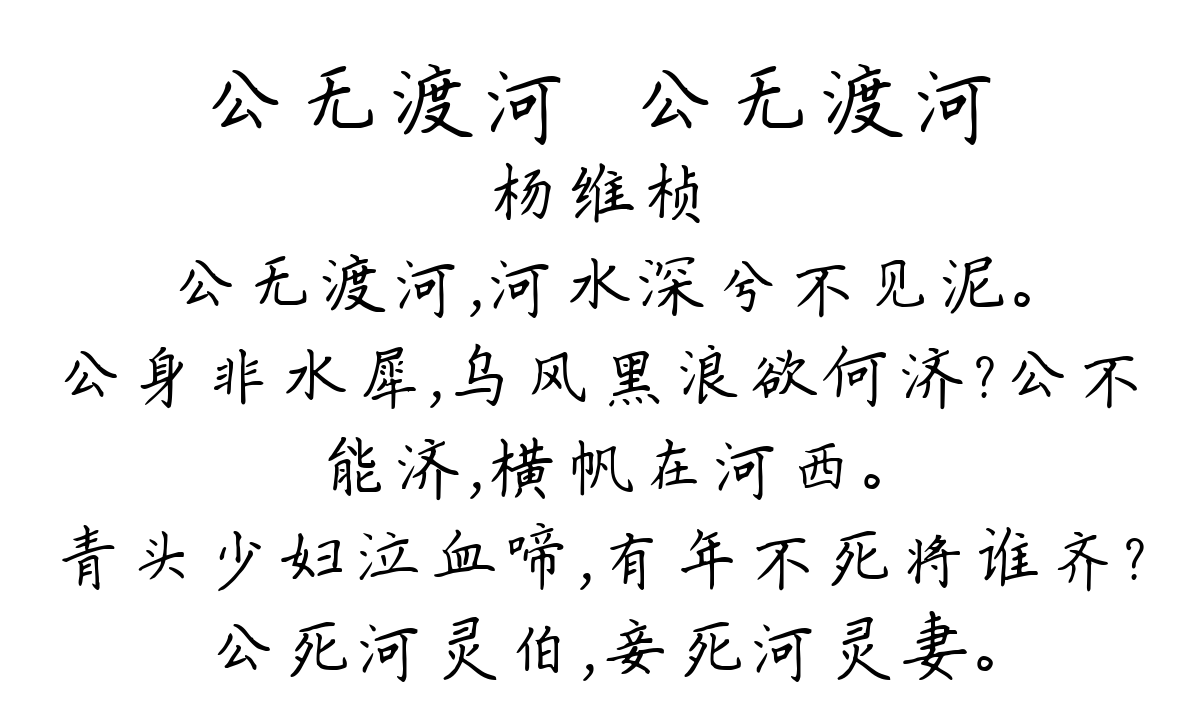 公无渡河 公无渡河
杨维桢
公无渡河,河水深兮不见泥。
公身非水犀,乌风黑浪欲何济?公不
能济,横帆在河西。
青头少妇泣血啼,有年不死将谁齐?
公死河灵伯,妾死河灵妻。